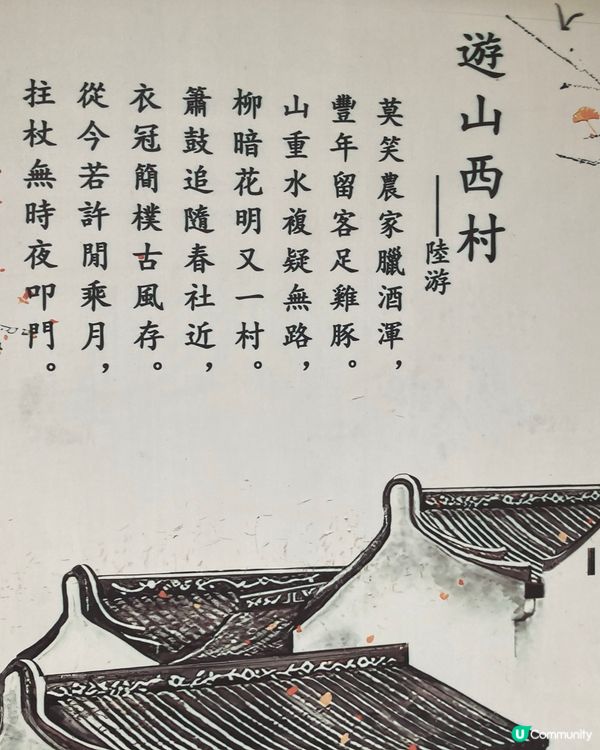 遊山西村
——陸游
莫笑農家臘酒渾，
豐年留客足雞豚。
山重水複疑無路，
柳暗花明又一村。
簫鼓追隨春社近，
衣冠簡樸古風存。
從今若許閒乘月，
拄杖無時夜叩門。
U Community